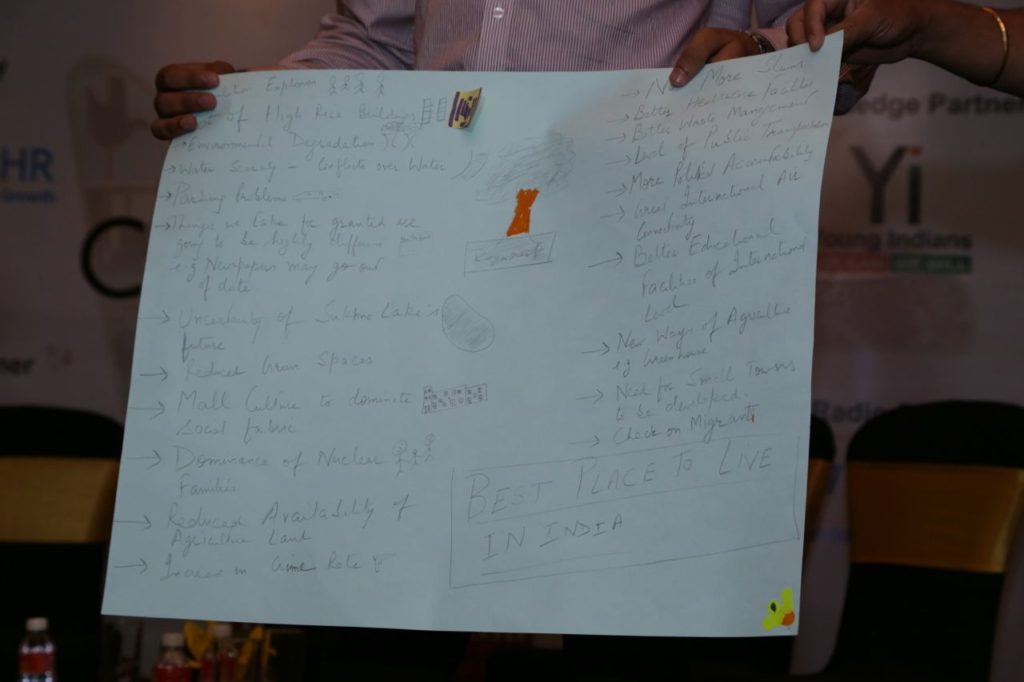 Explosion
of High Rise Buildings
→ Environmental Degradation
→ Water Scarcity - Conflicts over Water
→ Parking Problems
→ Things we take for granted are
going to be highly different
e.g Newspapers may go out
of date
→ Uncertainty of Sukhna Lake's
future
→ Reduced Green Spaces
→ Mall Culture to dominate
Social fabric
→ Dominance of Nuclear
Families
→ Reduced Availability of
Agriculture Land
→ Increase in Crime Rate
→ No More Slums
→ Better Healthcare Facilities
→ Better Waste Management
→ Level of Public Transportation
→ More Political Accountability
→ Great International Air
Connectivity
→ Better Educational
Facilities of International
Level
→ New Ways of Agriculture
e.g Greenhouse
→ Need for Small Towns
to be developed.
→ Check on Migrants
BEST PLACE TO LIVE
IN INDIA
HR
Growth
C
ner
edge Partner
Yi
Young Indians
Radio